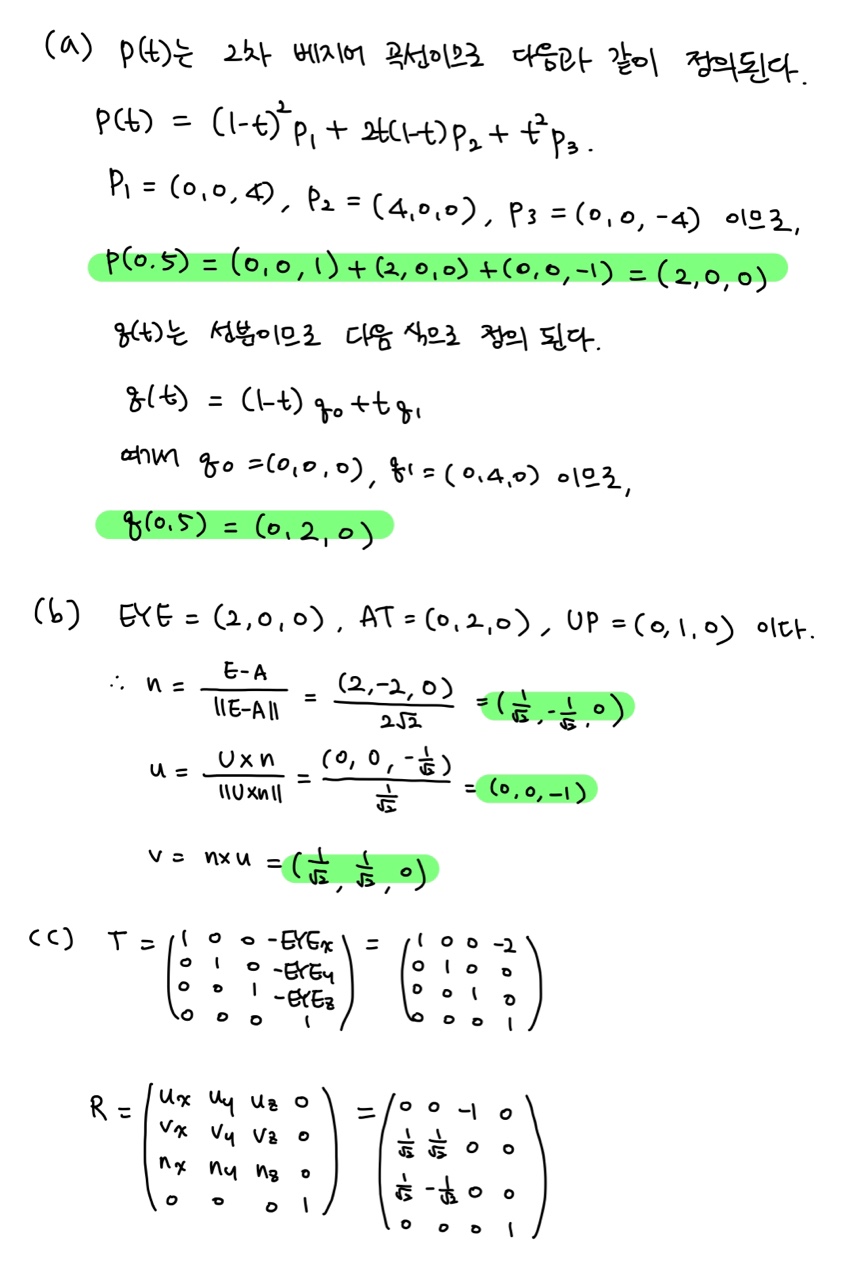 (a) P(t)는 2차 베지어 곡선이므로 다음과 같이 정의된다.
P(t) = (1-t)²P₁ + 2t(1-t)P₂ + t²P₃.
P₁ = (0,0,4), P₂ = (4,0,0), P₃ = (0,0,-4) 이므로,
P(0.5) = (0,0,1)+(2,0,0)+(0,0,-1) = (2,0,0)
q(t)는 선분이므로 다음 식으로 정의 된다.
q(t) = (1-t)q₀ + tq₁
여기서 q₀ = (0,0,0), q₁ = (0,4,0) 이므로,
q(0.5) = (0,2,0)
(b) EYE = (2,0,0), AT = (0,2,0), UP = (0,1,0) 이다.
∴ n = E-A / ||E-A|| = (2,-2,0) / 2√2 = (1/√2, -1/√2, 0)
u = U×n / ||U×n|| = (0, 0, -1/√2) / 1/√2 = (0,0,-1)
v = n×u = (1/√2, 1/√2, 0)
(c) T = ( 1 0 0 -EYEx ) = ( 1 0 0 -2 )
0 1 0 -EYEy 0 1 0 0
0 0 1 -EYEz 0 0 1 0
0 0 0 1 0 0 0 1
R = ( ux uy uz 0 ) = ( 0 0 -1 0 )
vx vy vz 0 1/√2 1/√2 0 0
nx ny nz 0 1/√2 -1/√2 0 0
0 0 0 1 0 0 0 1